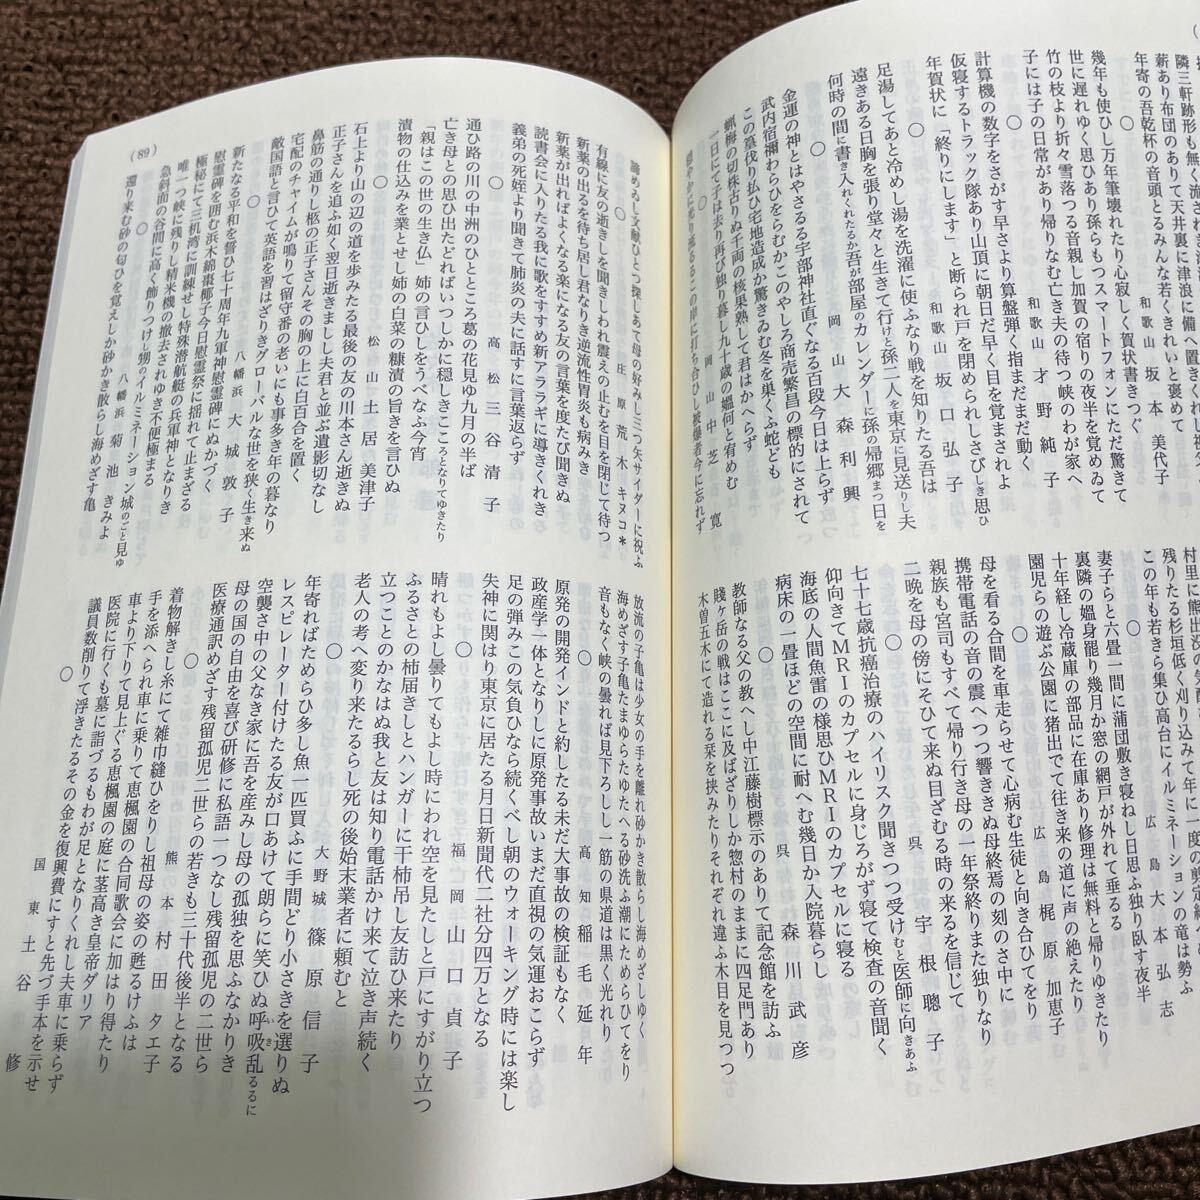 隣三軒跡形も無く流さ
薪あり布団のありて天井裏に津浪に備へ
年寄の吾乾杯の音頭とるみんな若くきれいと褒めて
○
和歌山 坂本美代子
幾年も使ひし万年筆壊れたり心寂しく賀状書きつぐ
世に遅れゆく思ひあり孫らもつスマートフォンにただ驚きて
竹の枝より折々雪落つる音親し加賀の宿りの夜半を覚めゐて
子には子の日常があり帰りなむ亡き夫の待つ峡のわが家へ
○
和歌山 才野純子
計算機の数字をさがす早さより算盤弾く指まだまだ動く
仮寝するトラック隊あり山頂に朝日だ早く目を覚まされよ
年賀状に「終りにします」と断られ戸を閉められしさびしき思ひ
○
和歌山 坂口弘子
足湯してあと冷めし湯を洗濯に使ふなり戦を知りたる吾は
遠きある日胸を張り堂々と生きて行けと孫二人を東京に見送りし夫
何時の間に書き入れくれたるか吾が部屋のカレンダーに孫の帰郷まつ日を
○
岡山 大森利興
金運の神とはやさるる宇部神社直ぐなる百段今日は上らず
武内宿禰わらひをらむかこのやしろ商売繁昌の標的にされて
この篁伐り払ひ宅地造成か驚きゐむ冬を巣くふ蛇ども
蝋梅の切株古りぬ千両の核果熟して君はかへらず
○
岡山 中芝寛
一日にて子は去り再び独り暮し九十歳の媼何と宥めむ
穏やかに光り巡るるこの岸に打ち合ひし被爆者今に忘れず
村里に熊出没
残りたる杉垣低く刈り込みて年に一度の剪定
この年も若きら集ひ高台にイルミネーションの竜は勢ふ
○
広島 大本弘志
妻子らと六畳一間に蒲団敷き寝ねし日思ふ独り臥す夜半
裏隣の媼身罷り幾月か窓の網戸が外れて垂るる
十年経し冷蔵庫の部品に在庫あり修理は無料と帰りゆきたり
園児らの遊ぶ公園に猪出でて往き来の道に声の絶えたり
○
広島 梶原加恵子
母を看る合間を車走らせて心病む生徒と向き合ひてをり
携帯電話の音の震へつつ響ききぬ母終焉の刻のさ中に
親族も宮司もすべて帰り行き母の一年祭終りまた独りなり
二晩を母の傍にそひて来ぬ目ざむる時の来るを信じて
○
呉 宇根聰子
七十七歳抗癌治療のハイリスク聞きつつ受けむと医師に向きあふ
仰向きてMRIのカプセルに身じろがず寝て検査の音聞く
海底の人間魚雷の様思ひMRIのカプセルに寝る
病床の一畳ほどの空間に耐へむ幾日か入院暮らし
○
呉 森川武彦
教師なる父の教へし中江藤樹標示のありて記念館を訪ふ
賤ヶ岳の戦はここに及ばざりしか惣村のままに四足門あり
木曽五木にて造れる栞を挟みたりそれぞれ違ふ木目を見つつ
諦めぬし文献ひとつ探しあて母の好みし三つ矢サイダーに祝ふ
○
庄原 荒木キヌコ*
有線に友の逝きしを聞きしわれ震えの止むを目を閉じて待つ
新薬の出るを待ち居し君なりき逆流性胃炎も病みき
新薬が出ればよくなる楽になる友の言葉を度たび聞きぬ
読書会に入りたる我に歌をすすめ新アララギに導きくれき
義弟の死姪より聞きて肺炎の夫に話すに言葉返らず
○
高松 三谷清子
通ひ路の川の中洲のひとところ葛の花見ゆ九月の半ば
亡き母との思ひ出たどればいつしかに穏しきこころとなりてゆきたり
「親はこの世の生き仏」姉の言ひしをうべなふ今宵
漬物の仕込みを業とせし姉の白菜の糠漬の旨きを言ひぬ
○
松山 土居美津子
石上より山の辺の道を歩みたる最後の友の川本さん逝きぬ
正子さんを追ふ如く翌日逝きましし夫君と並ぶ遺影切なし
鼻筋の通りし柩の正子さんその胸の上に白百合を置く
宅配のチャイムが鳴りて留守番の老いにも事多き年の暮なり
敵国語と言ひて英語を習はざりきグローバルな世を狭く生き来ぬ
○
八幡浜 大城敦子
新たなる平和を誓ひ七十周年九軍神慰霊碑にぬかづく
慰霊碑を囲む浜木綿棗椰子今日慰霊祭に揺れて止まざる
極秘にて三机湾に訓練せし特殊潜航艇の兵軍神となりき
唯一つ峡に残りし精米機の撤去されゆき不便極まる
急斜面の谷間に高く飾りつけし甥のイルミネーション城のごと見ゆ
○
八幡浜 菊池きみよ
還り来む砂の匂ひを覚えしか砂かき散らし海めざす亀
(89)
放流の子亀は少女の手を離れ砂かき散らし海めざしゆく
海めざす子亀たまゆらたゆたへる砂洗ふ潮にためらひてをり
音もなく峡の曇れば見下ろしし一筋の県道は黒く光れり
○
高知 稲毛延年
原発の開発インドと約したる未だ大事故の検証もなく
政産学一体となりしに原発事故いまだ直視の気運おこらず
足の弾みこの気負ひなら続くべし朝のウォーキング時には楽し
失神に関はり東京に居たる月日新聞代二社分四万となる
○
福岡 山口貞子
晴れもよし曇りてもよし時にわれ空を見たしと戸にすがり立つ
ふるさとの柿届きしとハンガーに干柿吊し友訪ひ来たり
立つことのかなはぬ我と友は知り電話かけ来て泣き声続く
老人の考へ変り来たるらし死の後始末業者に頼むと
○
大野城 篠原信子
年寄ればためらひ多し魚一匹買ふに手間どり小さきを選りぬ
レスピレーター付けたる友が口あけて朗らに笑ひぬ呼吸乱るるに
いき
空襲さ中の父なき家に吾を産みし母の孤独を思ふなかりき
母の国の自由を喜び研修に私語一つなし残留孤児の二世ら
医療通訳めざす残留孤児二世らの若きも三十代後半となる
○
熊の本 村田タエ子
着物解きし糸にて雑巾縫ひをりし祖母の姿の甦るけふは
手を添へられ車に乗りて恵楓園の合同歌会に加はり得たり
車より下りて見上ぐる恵楓園の庭に茎高き皇帝ダリア
医院に行くも墓に詣づるもわが足となりくれし夫車に乗らず
議員数削りて浮きたるその金を復興費にすと先づ手本を示せ
○
国東 土谷修